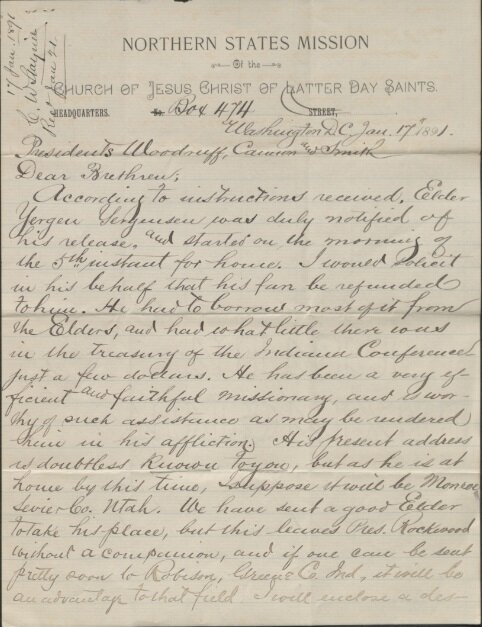 17 Jan. 1891
C. W. Stayner
Recd Jan 21.
NORTHERN STATES MISSION
Of the
CHURCH OF JESUS CHRIST OF LATTER DAY SAINTS.
HEADQUARTERS. No. Box 474 STREET,
Washington D.C, Jan. 17th 1891.
Presidents Woodruff, Cannon and Smith
Dear Brethren;
According to instructions received, Elder
Yergen Jergensen was duly notified of
his release, and started on the morning of
the 5th instant for home. I would solicit
in his behalf that his fare be refunded
to him. He had to borrow most of it from
the Elders, and had what little there was
in the treasury of the Indiana Conference
just a few dollars. He has been a very ef-
ficient and faithful missionary, and is wor-
thy of such assistance as may be rendered
him in his affliction. His present address
is doubtless known to you, but as he is at
home by this time, I suppose it will be Monroe
Sevier Co. Utah. We have sent a good Elder
to take his place, but this leaves Pres. Rockwood
without a companion, and if one can be sent
pretty soon to Robison, Greene Co. Ind., it will be
an advantage to that field. I will enclose a des-